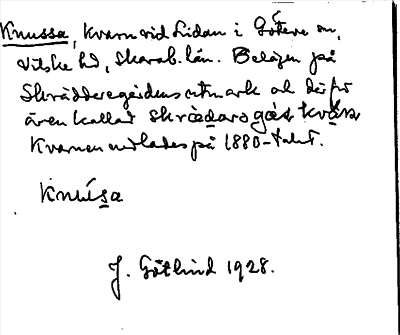 Knussa, kvarn vid Lidan i Göteve sn,
Vilske hd, Skarab. län. Belägen på
Skräddaregårdens utmark och därför
även kallad skrædaregås kværn
Kvarnen nedlades på 1880-talet.
Knúsa
J. Götlind 1928.